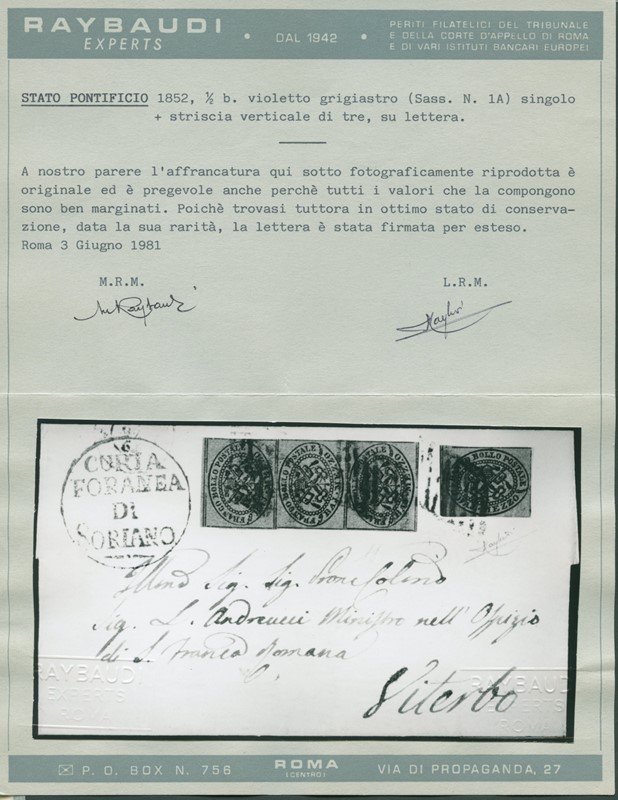 RAYBAUDI
EXPERTS
• DAL 1942 •
PERITI FILATELICI DEL TRIBUNALE
E DELLA CORTE D'APPELLO DI ROMA
E DI VARI ISTITUTI BANCARI EUROPEI
STATO PONTIFICIO 1852, ½ b. violetto grigiastro (Sass. N. 1A) singolo
+ striscia verticale di tre, su lettera.
A nostro parere l'affrancatura qui sotto fotograficamente riprodotta è
originale ed è pregevole anche perchè tutti i valori che la compongono
sono ben marginati. Poichè trovasi tuttora in ottimo stato di conserva-
zione, data la sua rarità, la lettera è stata firmata per esteso.
Roma 3 Giugno 1981
M.R.M.
L.R.M.
CURIA
FORANEA
DI
SORIANO
FRANCO BOLLO POSTALE
FRANCO BOLLO POSTALE
FRANCO BOLLO POSTALE
BOLLO POSTALE
MEZZO
Sig. Sig.
Sig. L. Andreucci Ministro nell'Ospizio
di S. Franco Romana
Viterbo
RAYBAUDI
EXPERTS
ROMA
RAYBAUDI
EXPERTS
ROMA
P. O. BOX N. 756
ROMA
(CENTRO)
VIA DI PROPAGANDA, 27